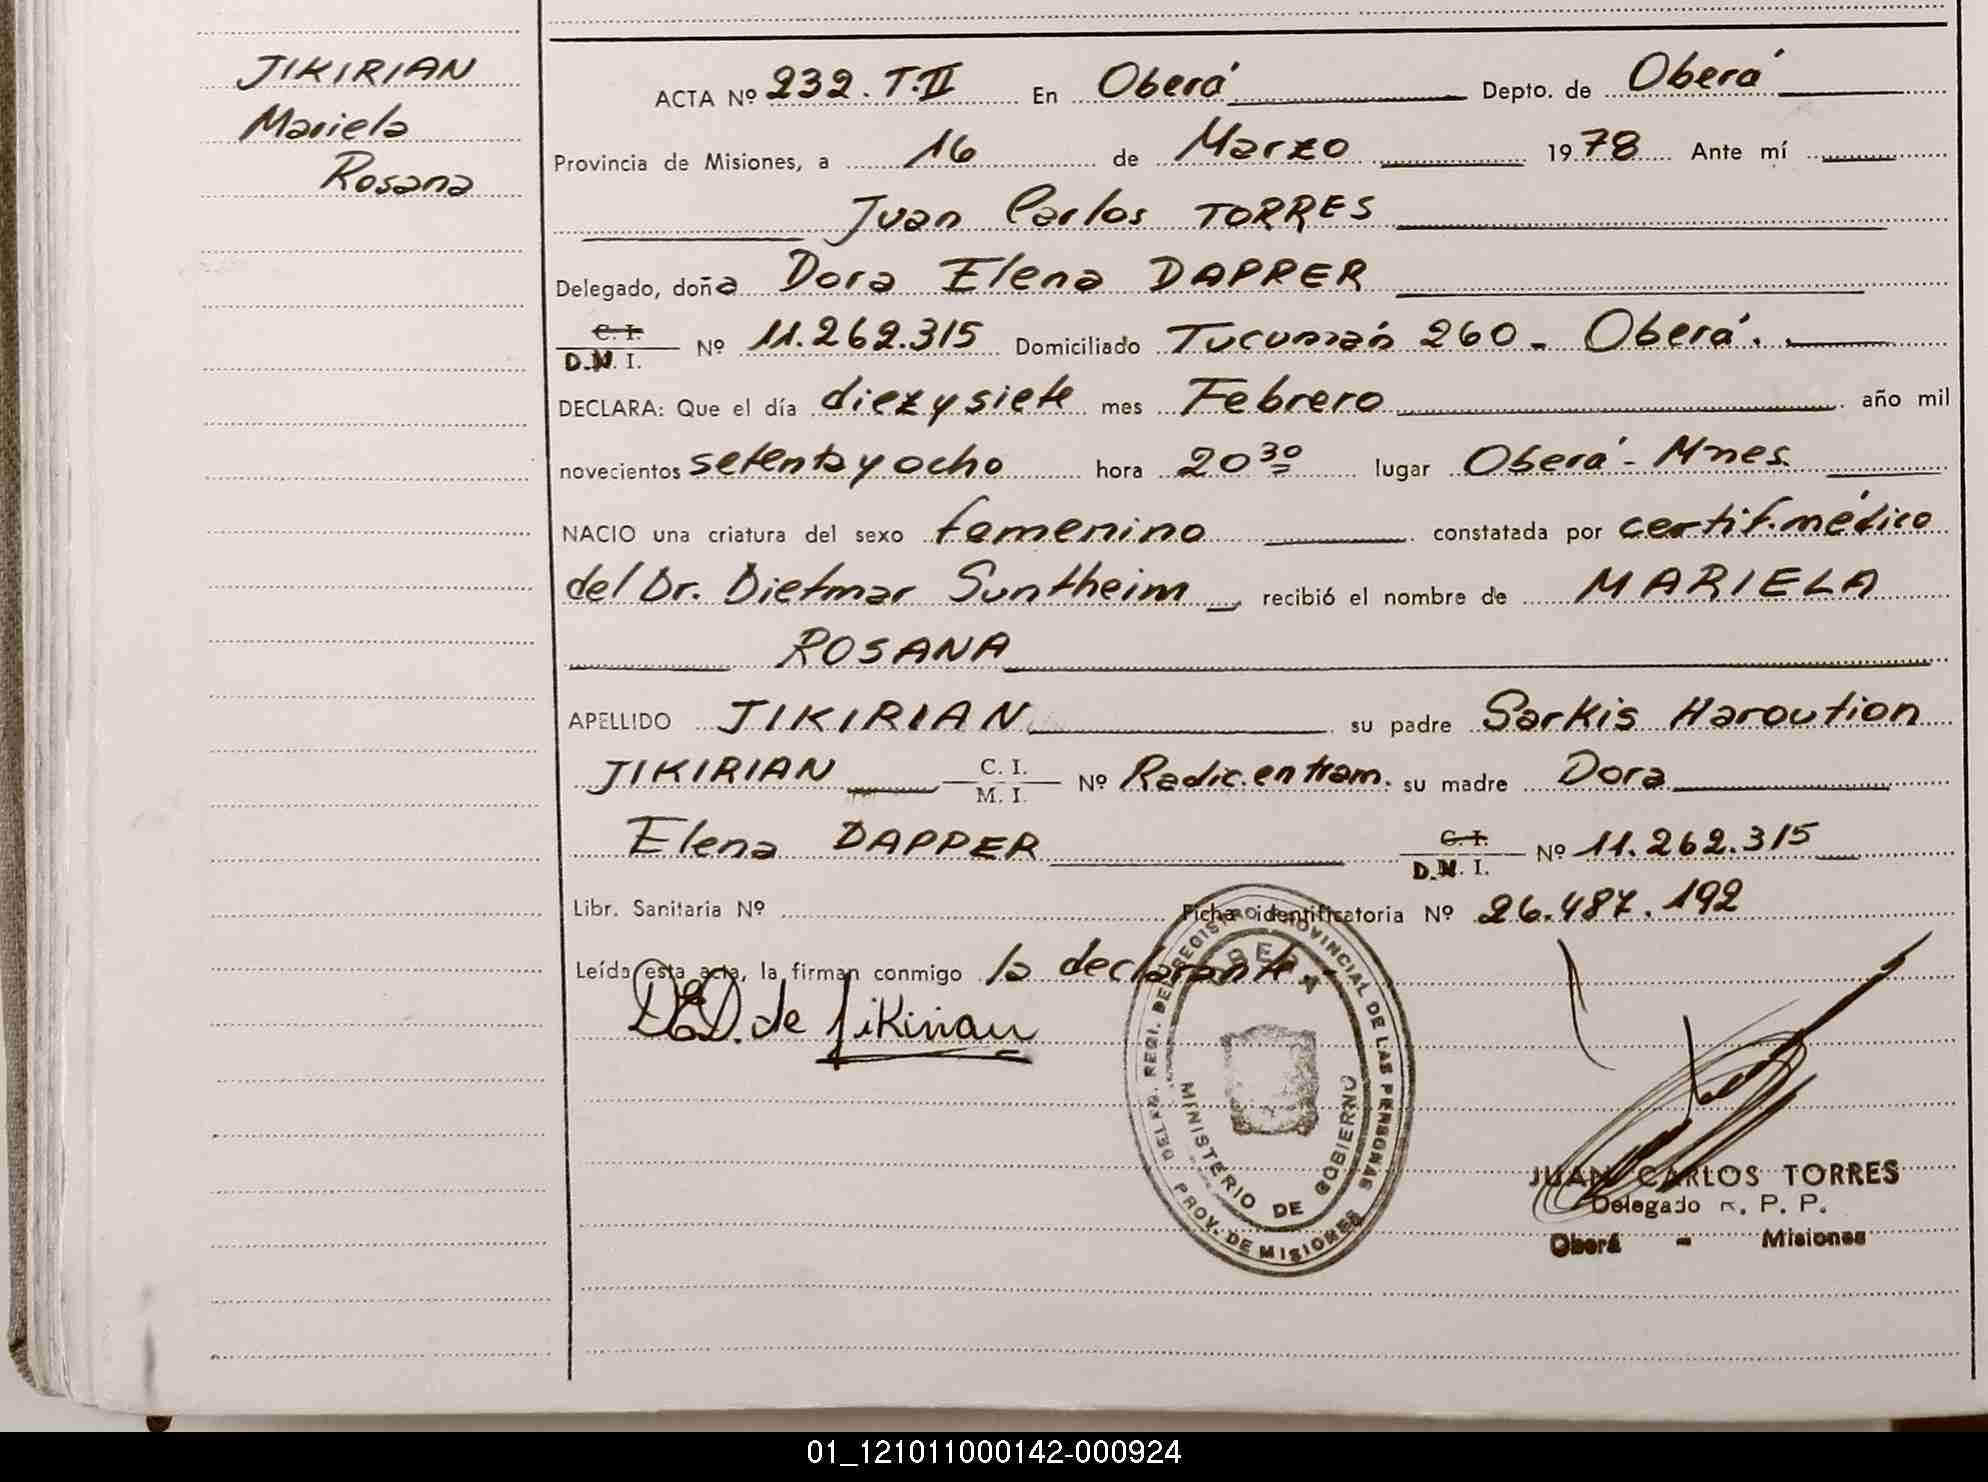 JIKIRIAN
Mariela
Rosana
ACTA Nº 232. T.II En Oberá Depto. de Oberá
Provincia de Misiones, a 16 de Marzo 1978 Ante mí
Juan Carlos TORRES
Delegado, doña Dora Elena DAPPER
C. I. D.N.I. Nº 11.262.315 Domiciliado Tucumán 260 - Oberá.
DECLARA: Que el día diezysiete mes Febrero año mil
novecientos setentayocho hora 20 30 lugar Oberá - Mnes.
NACIO una criatura del sexo femenino constatada por certif. médico
del Dr. Dietmar Suntheim recibió el nombre de MARIELA
ROSANA
APELLIDO JIKIRIAN su padre Sarkis Haroution
JIKIRIAN C. I. M. I. Nº Radic. en tram. su madre Dora
Elena DAPPER C. I. D.N.I. Nº 11.262.315
Libr. Sanitaria Nº Ficha identificatoria Nº 26.487.192
Leída esta acta, la firman conmigo la declarante.-
DED. de Jikirian
DELEG. REGI. DEL REGISTRO PROVINCIAL DE LAS PERSONAS
OBERA
MINISTERIO DE GOBIERNO
PROV. DE MISIONES
JUAN CARLOS TORRES
Delegado R. P. P.
Oberá - Misiones
01_121011000142-000924